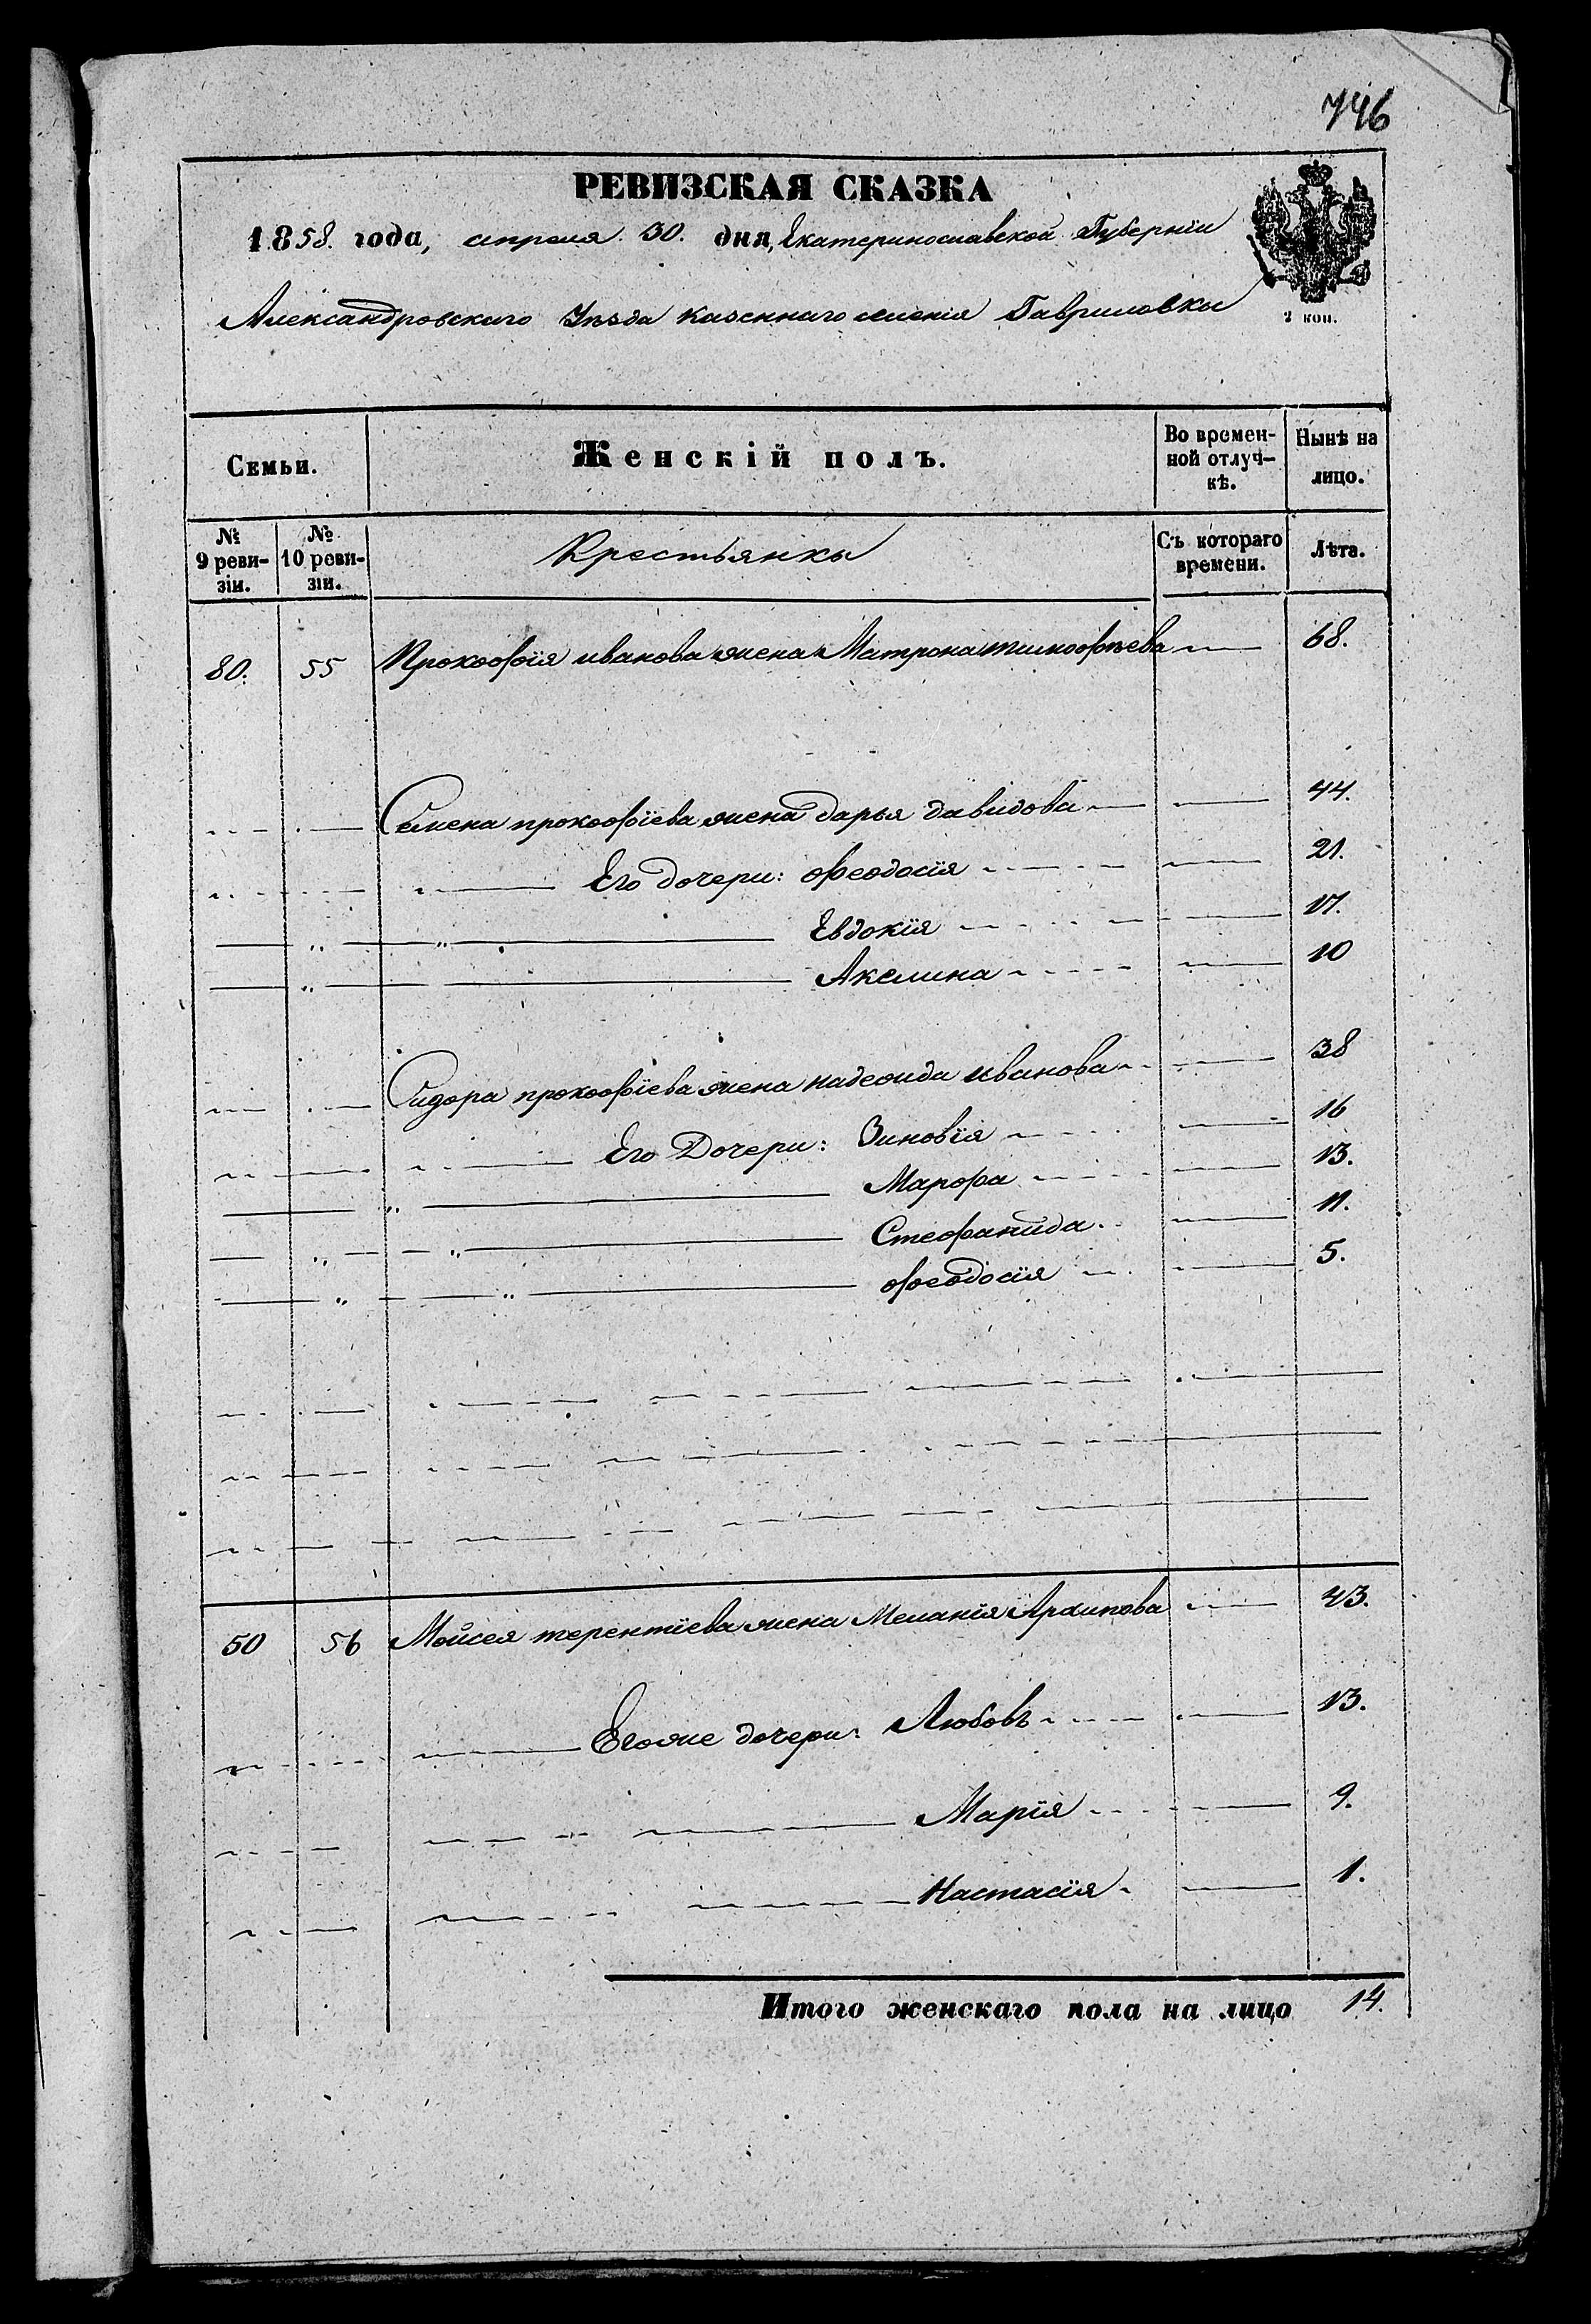 746
РЕВИЗСКАЯ СКАЗКА
1858. года, апреля 30. дня, Екатеринославской Губерніи
Александровскаго Уѣзда казеннаго селенія Гавриловки
2 коп.
Семьи.
Женскій полъ.
Во времен-
ной отлуч-
кѣ.
Нынѣ на
лицо.
№
9 реви-
зіи.
№
10 реви-
зіи.
Крестьянки
Съ котораго
времени.
Лѣта.
80. 55 Прокофія иванова жена Матрона тимофѣева 68.
Семена прокофіева жена дарья давидова 44.
Его дочери: феодосія 21.
Евдокія 17.
Акелина 10
Сидора прокофіева жена надежда иванова 38
Его Дочери: Зиновія 16
Марфа 13.
Стефанида. 11.
феодосія 5.
50 56 Мойсея терентіева жена Меланія Архипова 43.
Егоже дочери: Любовъ 13.
Марія 9.
Настасія 1.
Итого женскаго пола на лицо 14.